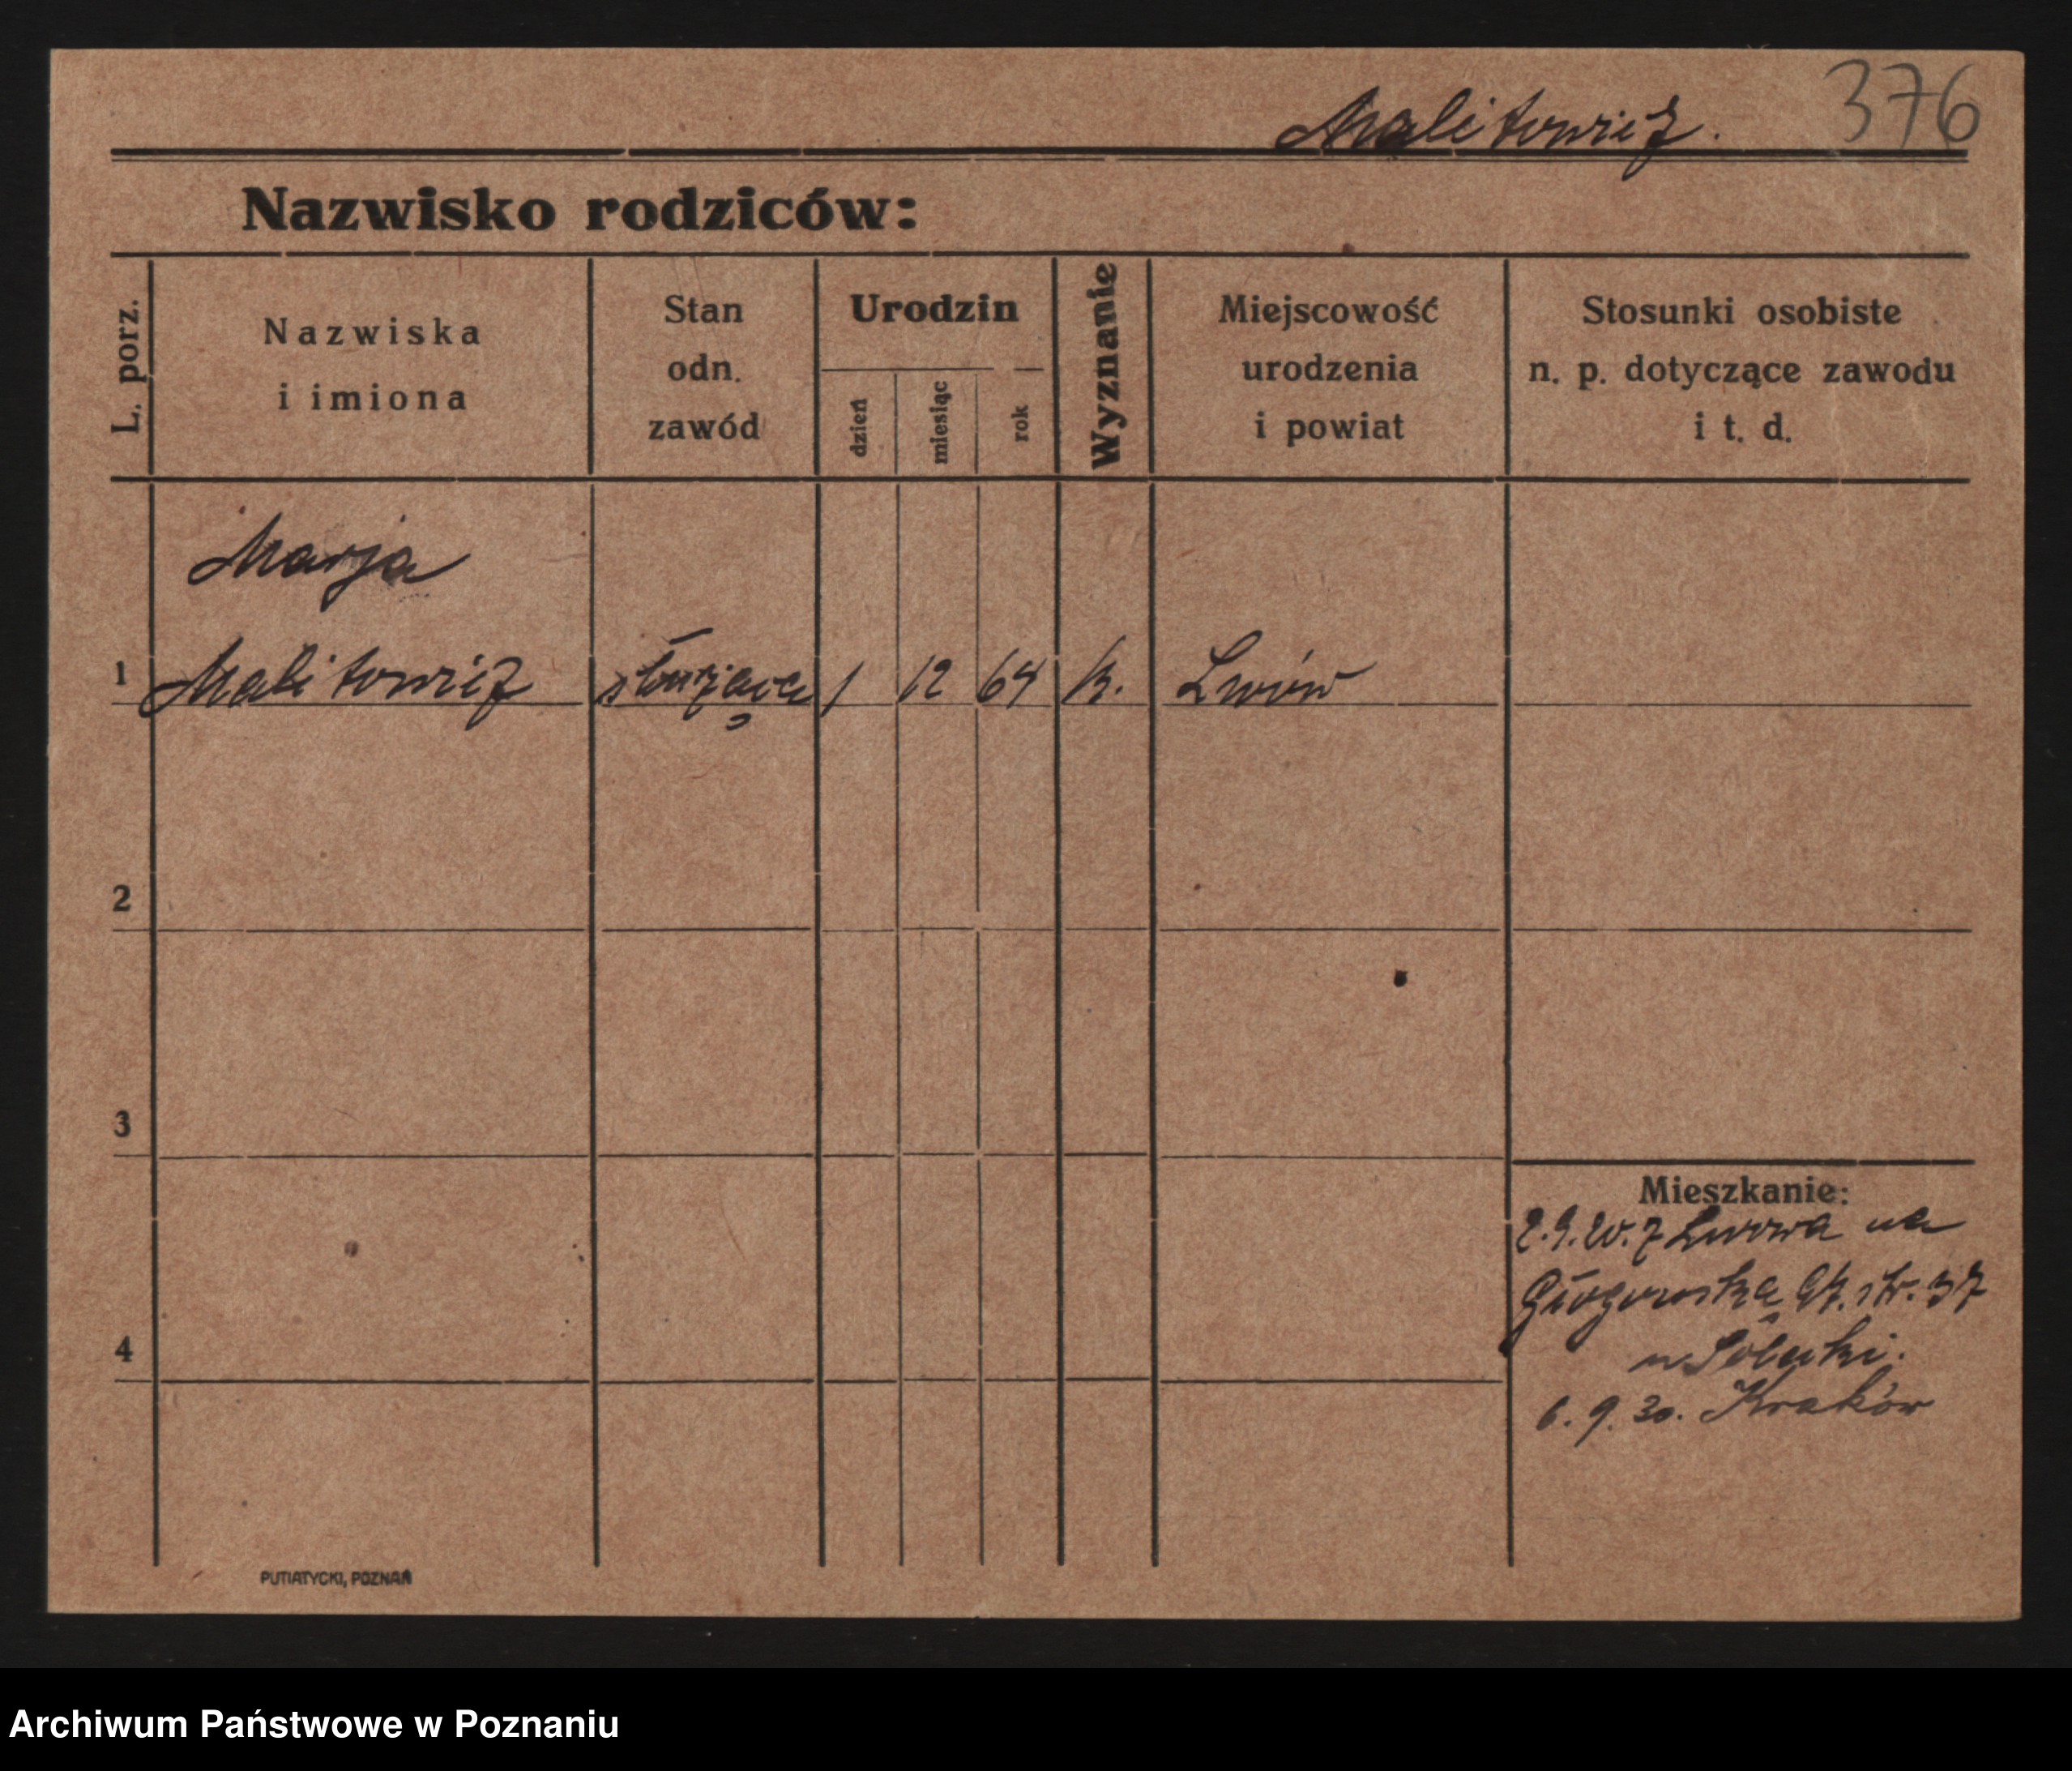 Malitowicz. 376
Nazwisko rodziców:
L. porz.
Nazwiska
i imiona
Stan
odn.
zawód
Urodzin
dzień
miesiąc
rok
Wyznanie
Miejscowość
urodzenia
i powiat
Stosunki osobiste
n. p. dotyczące zawodu
i t. d.
Marja
1 Malitowicz służąca 1 12 64 k. Lwów
2
3
4
Mieszkanie:
2.9.20. z Lwowa na
Głogowska 37
6. 9. 30. Kraków
PUTIATYCKI, POZNAŃ
Archiwum Państwowe w Poznaniu